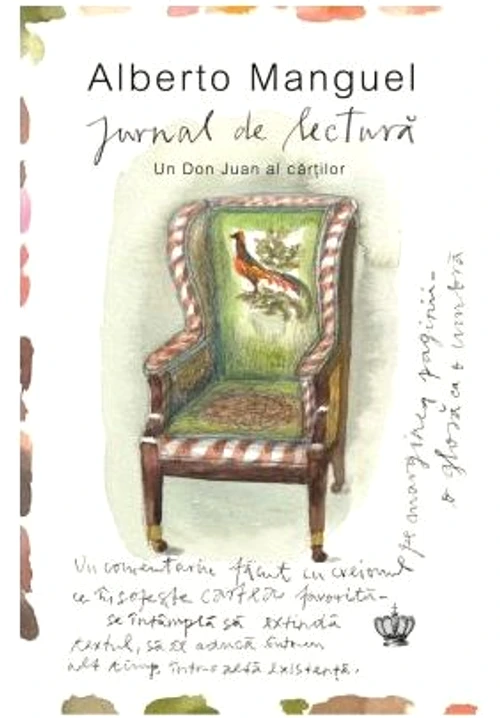 Alberto Manguel
Jurnal de lectură
Un Don Juan al cărților
Un comentariu făcut cu creionul
ce însoțește cartea favorită -
se întâmplă să extindă
textul, să îl aducă într-un
alt timp, într-o altă existență.
pe marginea paginii -
o glosă ca o umbră